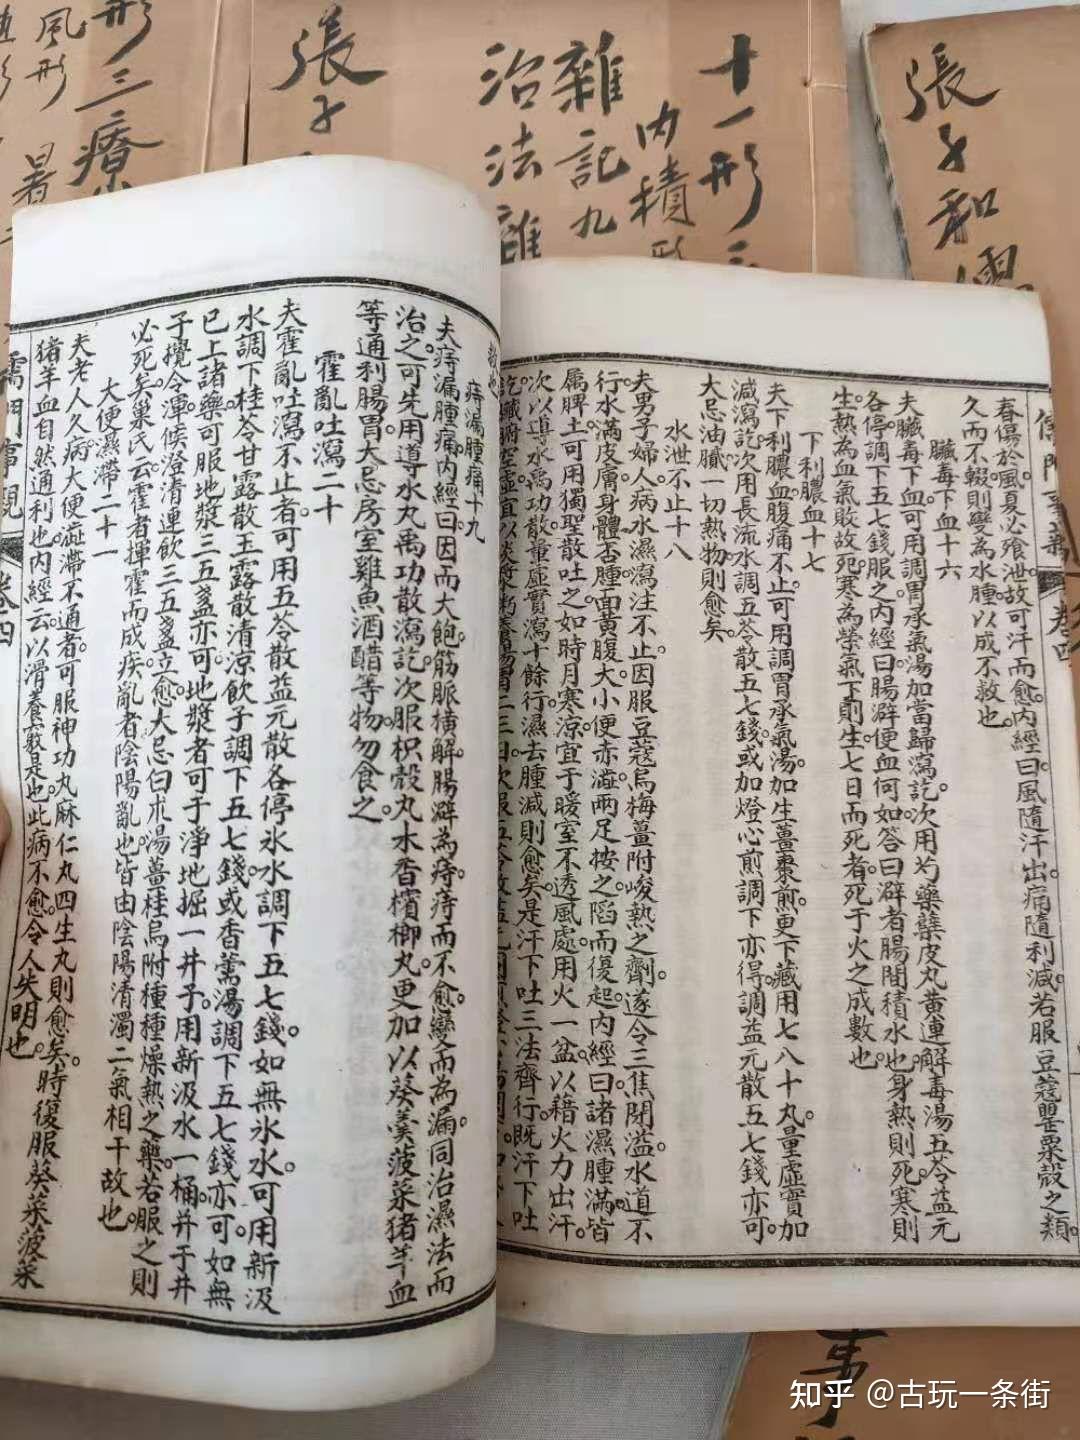 形三療
風形
暑
張子
十一形三
內積形
雜記九
治法雜
張子和儒
儒門事親 卷四
春傷於風夏必飱泄故可汗而愈內經曰風隨汗出痛隨利減若服豆蔻罌粟殻之類
久而不輟則變為水腫以成不救也
臟毒下血十六
夫臟毒下血可用調胃承氣湯加當歸瀉訖次用芍藥蘗皮丸黃連解毒湯五苓益元
各停調下五七錢服之內經曰腸澼便血何如答曰澼者腸間積水也身熱則死寒則
生熱為血氣敗故死寒為榮氣下則生七日而死者死于火之成數也
下利膿血十七
夫下利膿血腹痛不止可用調胃承氣湯加生薑棗煎更下藏用七八十丸量虛實加
減瀉訖次用長流水調五苓散五七錢或加燈心煎調下亦得調益元散五七錢亦可
大忌油膩一切熱物則愈矣
水泄不止十八
夫男子婦人病水濕瀉注不止因服豆蔻烏梅薑附峻熱之劑遂令三焦閉溢水道不
行水滿皮膚身體否腫面黃腹大小便赤澁兩足按之陷而復起內經曰諸濕腫滿皆
屬脾土可用獨聖散吐之如時月寒涼宜于暖室不透風處用火一盆以藉火力出汗
次以導水禹功散量虛實瀉十餘行濕去腫減則愈矣是汗下吐三法齊行既汗下吐
訖臟腑空虛宜以淡漿粥養腸胃二三日次服五苓散益元
痔漏腫痛十九
夫痔漏腫痛內經曰因而大飽筋脈橫解腸澼為痔痔而不愈變而為漏同治濕法而
治之可先用導水丸禹功散瀉訖次服枳殼丸木香檳榔丸更加以葵羹菠菜猪羊血
等通利腸胃大忌房室雞魚酒醋等物勿食之
霍亂吐瀉二十
夫霍亂吐瀉不止者可用五苓散益元散各停氷水調下五七錢如無氷水可用新汲
水調下桂苓甘露散玉露散清涼飲子調下五七錢或香薷湯調下五七錢亦可如無
已上諸藥可服地漿三五盞亦可地漿者可于淨地掘一井子用新汲水一桶并于井
子攪令渾候澄清連飲三五盞立愈大忌白朮湯薑桂烏附種種燥熱之藥若服之則
必死矣巢氏云霍者揮霍而成疾亂者陰陽亂也皆由陰陽清濁二氣相干故也
大便濕滯二十一
夫老人久病大便澁滯不通者可服神功丸麻仁丸四生丸則愈矣時復服葵菜菠菜
猪羊血自然通利也內經云以滑養竅是也此病不愈令人失明也
儒門事親 卷四
事
知乎 @古玩一条街